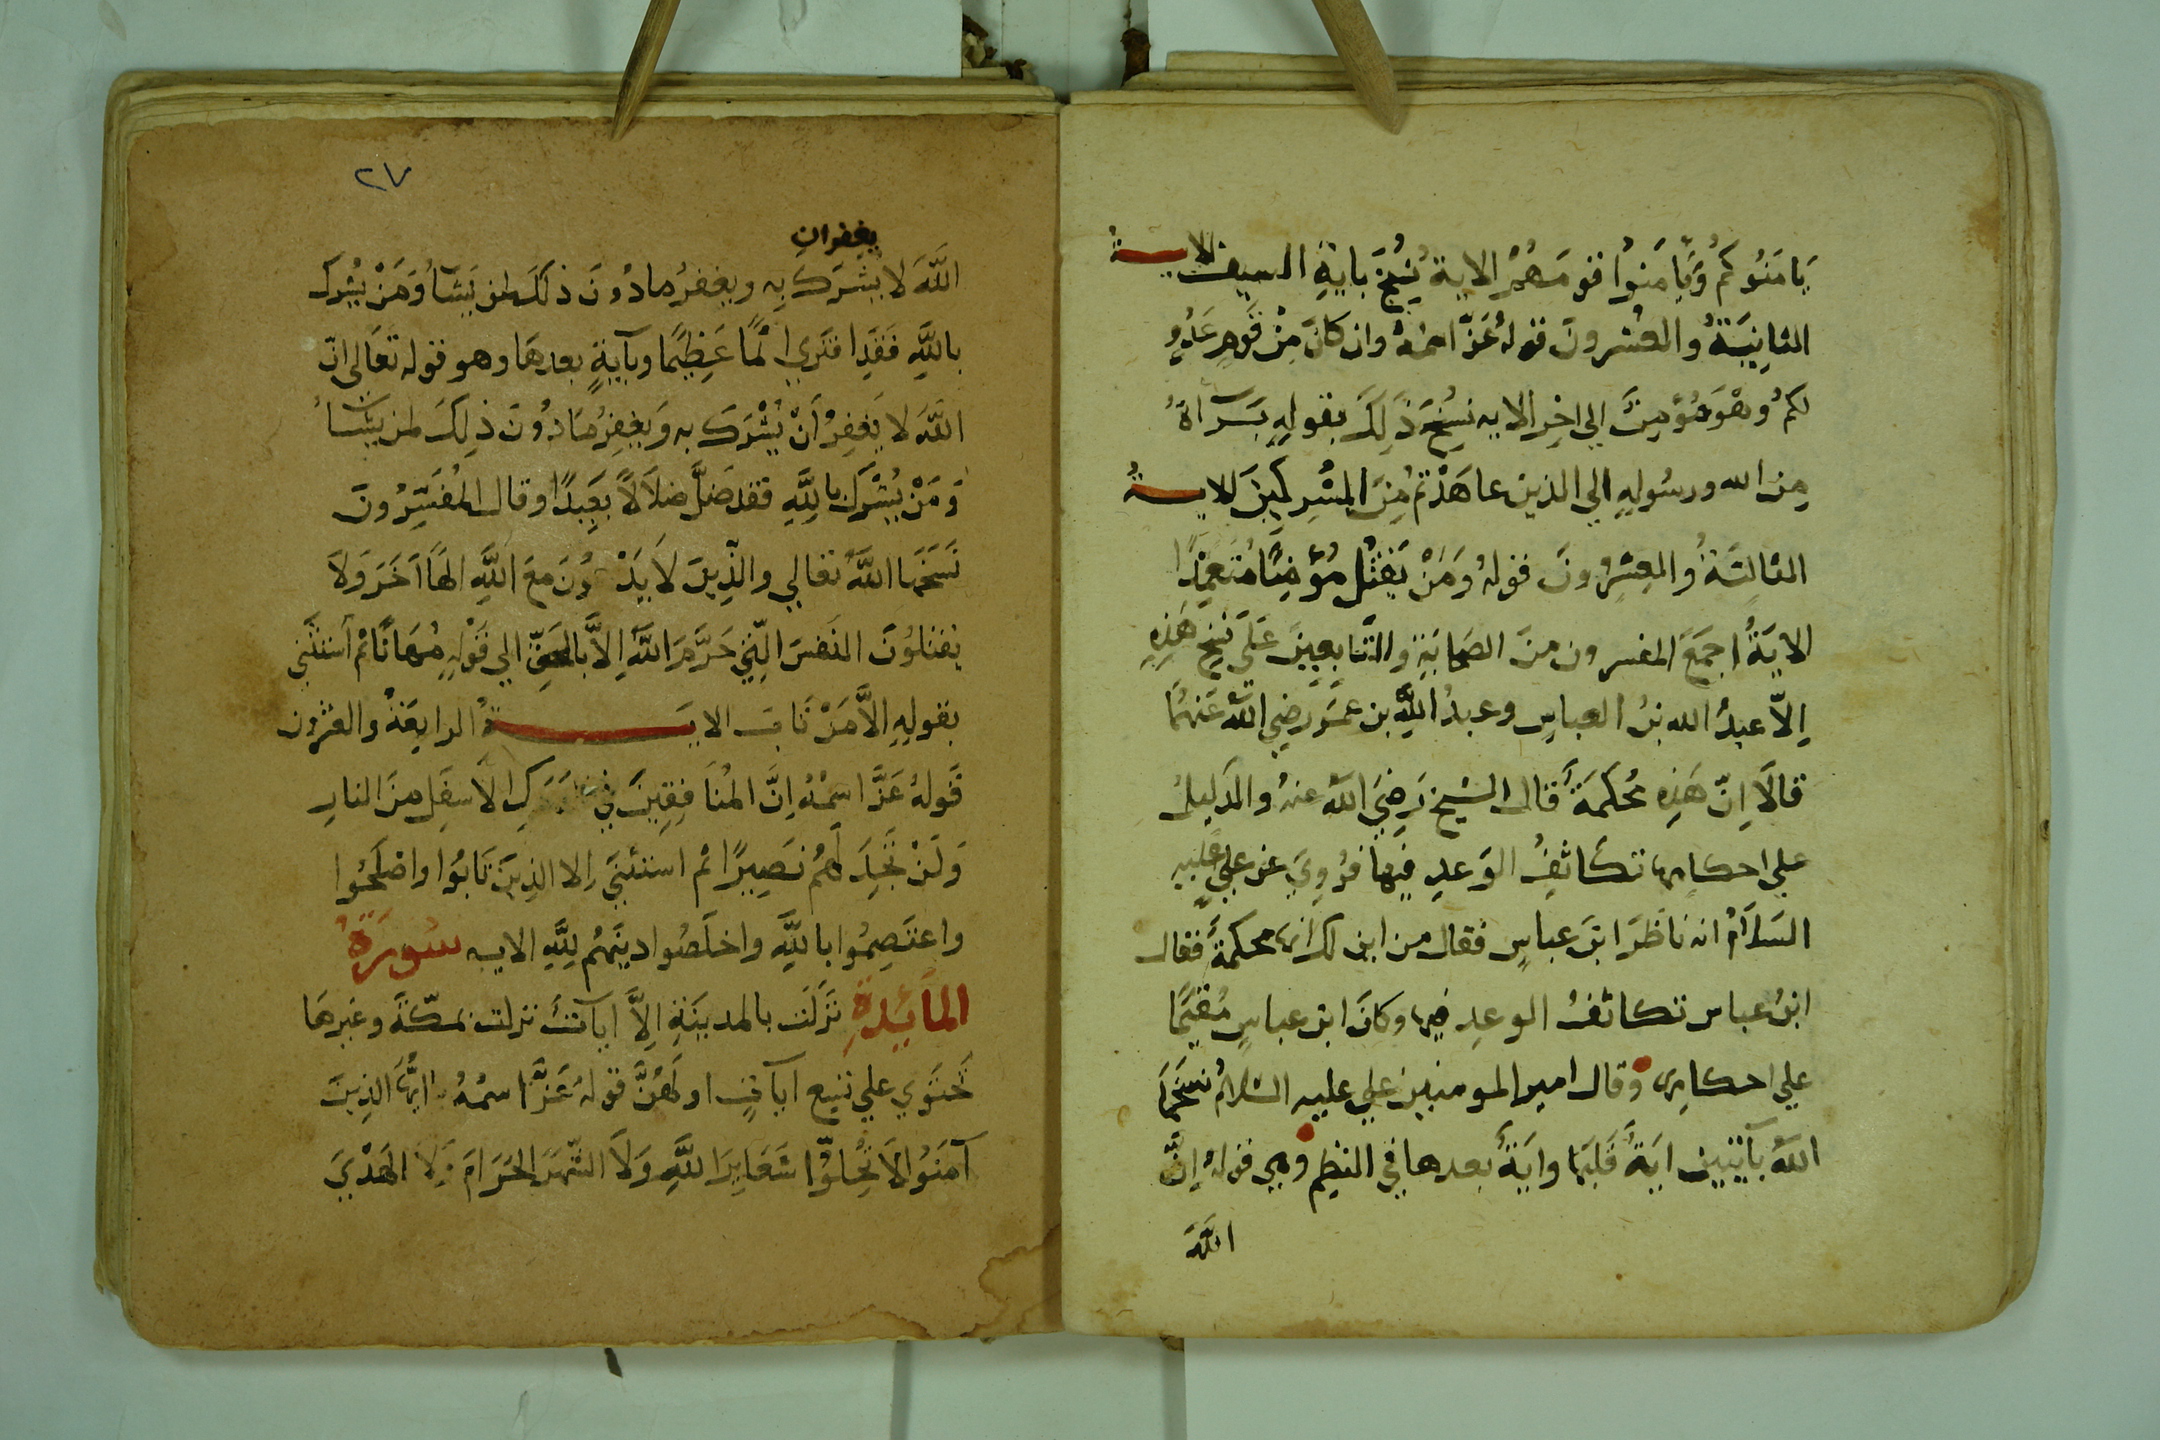 يَامَنُوكُمْ وَيَامَنُوا قومَهُمْ الاية نُسِخَ باية السيف الايـــة
الثانِيَةُ والعشرون قولهُ عَزّ اسمهُ وان كانَ مِنْ قومٍ عَدُوٍّ
لكمُ وهْوَ مُؤمِنٌ الي اخِرِ الايه نُسِخَ ذَلِكَ بقولِهِ بَرَآاةٌ
مِنَ الله ورسُولِهِ الي الذين عاهَدْتمُ مِنَ المشْرِكينَ الايـــةُ
الثالِثةُ والعِشْرونَ قولهُ وَمَنْ يَقتُلْ مُؤمِنًا مُتَعَمِّدًا
الايَةُ اجمَعَ المفسرون منَ الصحابَةِ والتَّابعيِنَ عَلَى نسخِ هَذِهِ
اِلاّ عبدُ الله بنُ العباسِ وعبدُ اللَّهِ بن عمَرَ رَضِي اللَّهُ عَنهُمَا
قالَا اِنّ هَذِهِ مُحكَمَةً قالَ الشيخ رَضِيَ اللَّهُ عنهُ والدَليلُ
علي احكامِها تكاثفُ الوَعدِ فيها فرُوِيَ عن علي عليهِ
السَلاَمُ انه ناظَرَ ابنَ عباسٍ فقال من اين لك انها محكمةً فقال
ابنُ عباس تكاثفُ الوعدِ فيها وكانَ ابن عباسٍ مُقيمًا
علي احكامِها وقال امير المومنين علي عليه السّلامُ نسَخَهَا
اللَّهُ بآيَتين ايَةً قَبلَها وايَةً بعدها في النظم وهي قولهُ اِنَّ
اللَّهَ
٢٧
يغفر ان
اللَّهَ لا يشْرَكَ بِهِ ويغفرُ مادُونَ ذلكَ لمن يَشَآءُ وَمَنْ يُشْرِكْ
باللَّهِ فَقَدِ افترَي اِثمًا عَظِيمًا وبآيةٍ بعدهَا وهو قوله تعَالى انّ
اللَّهَ لا يَغفِرُ أَنْ يُشْرَكَ به وَيغفِرُ مَادُونَ ذلِكَ لمن يشَآءُ
وَمَنْ يُشْرِكْ باللَّهِ فقد ضَلَّ ضَلاَلاً بَعِيدًا وقال المُفَسِّرُونَ
نَسَخَهَا اللَّهُ تعالي والَّذِينَ لاَ يَدْعُونَ معَ اللَّهِ الهَاً آخَرَ وَلاَ
يقتلُونَ النفسَ الّتِي حَرَّمَ اللَّهُ اِلاَّ بالحَقِّ الي قَوْلِهِ مُهَانًا ثمْ اسْتثنَي
بقولِهِ الاَّ مَنْ تَابَ الايَـــةُ الرابِعَةُ والعشرون
قَولهُ عَزَّ اسمُهُ اِنَّ المُنَافِقِينَ في الدَّرَكِ الاَسفَلِ منَ النارِ
وَلَنْ تَجِدَ لَهُم نَصِيرًا ثم استثنَي الا الذِينَ تَابُوا واصْلَحُوا
واعتَصِمُوا باللَّهِ واخلَصُوا دينَهُم لِلَّهِ الايه سُورَةُ
المَايِدَةِ نزَلَت بالمدينَةِ اِلاَّ ايآتٌ نزلت بمكّةَ وغيرهَا
تَحتَوي علي تسِع ايآتٍ اولَهُنَّ قولهُ عَزَّ اسمُهُ يا ايُّهَا الذِينَ
آمنُوا لاَ تُحِلوّا شَعَايِرَ اللَّهِ وَلاَ الشّهرَ الحَرَامَ وَلاَ الهَدْيَ